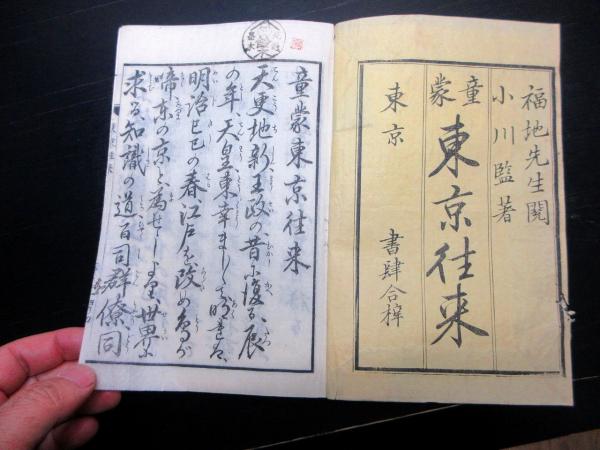 福地先生閲
小川監著
童蒙 東京往来
東京 書肆合梓
童蒙東京往来
天更地新、王政の昔に復る、辰
の年、天皇東幸まし〳〵
明治己巳の春、江戸を改め鳥が
啼東の京と為せしより、世界に
求る、知識の道百司群僚同